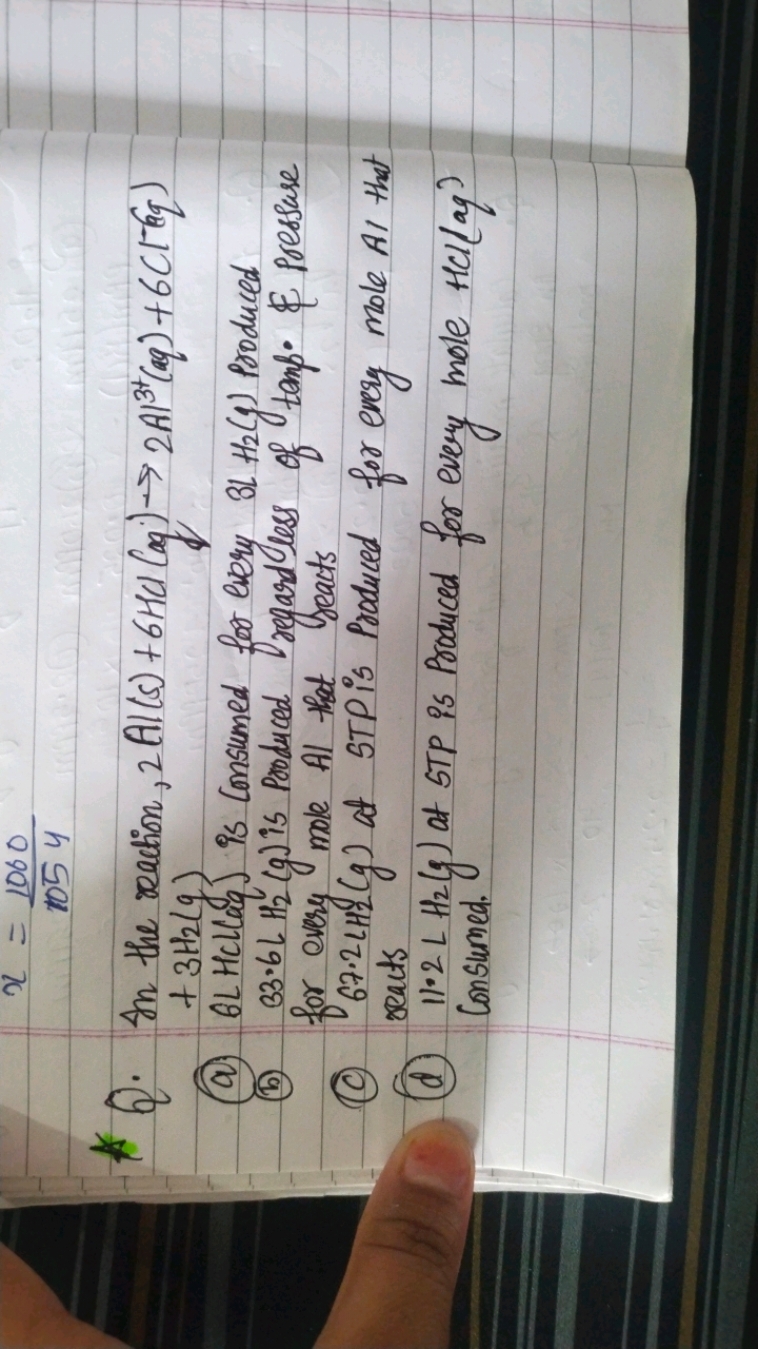 x = 1060
1054
Q. In the reaction, 2Al(s) + 6Hcl(aq.) → 2Al³⁺(aq) + 6Cl⁻(aq)
+ 3H₂(g)
(a) 6L Hcl(aq) is Consumed for every 3L H₂(g) Produced
(b) 33.6L H₂(g) is Produced regardless of temp. & pressure
for every mole Al that reacts
(c) 67.2L H₂(g) at STP is Produced for every mole Al that
reacts
(d) 11.2 L H₂(g) at STP is Produced for every mole HCl(aq)
Consumed.